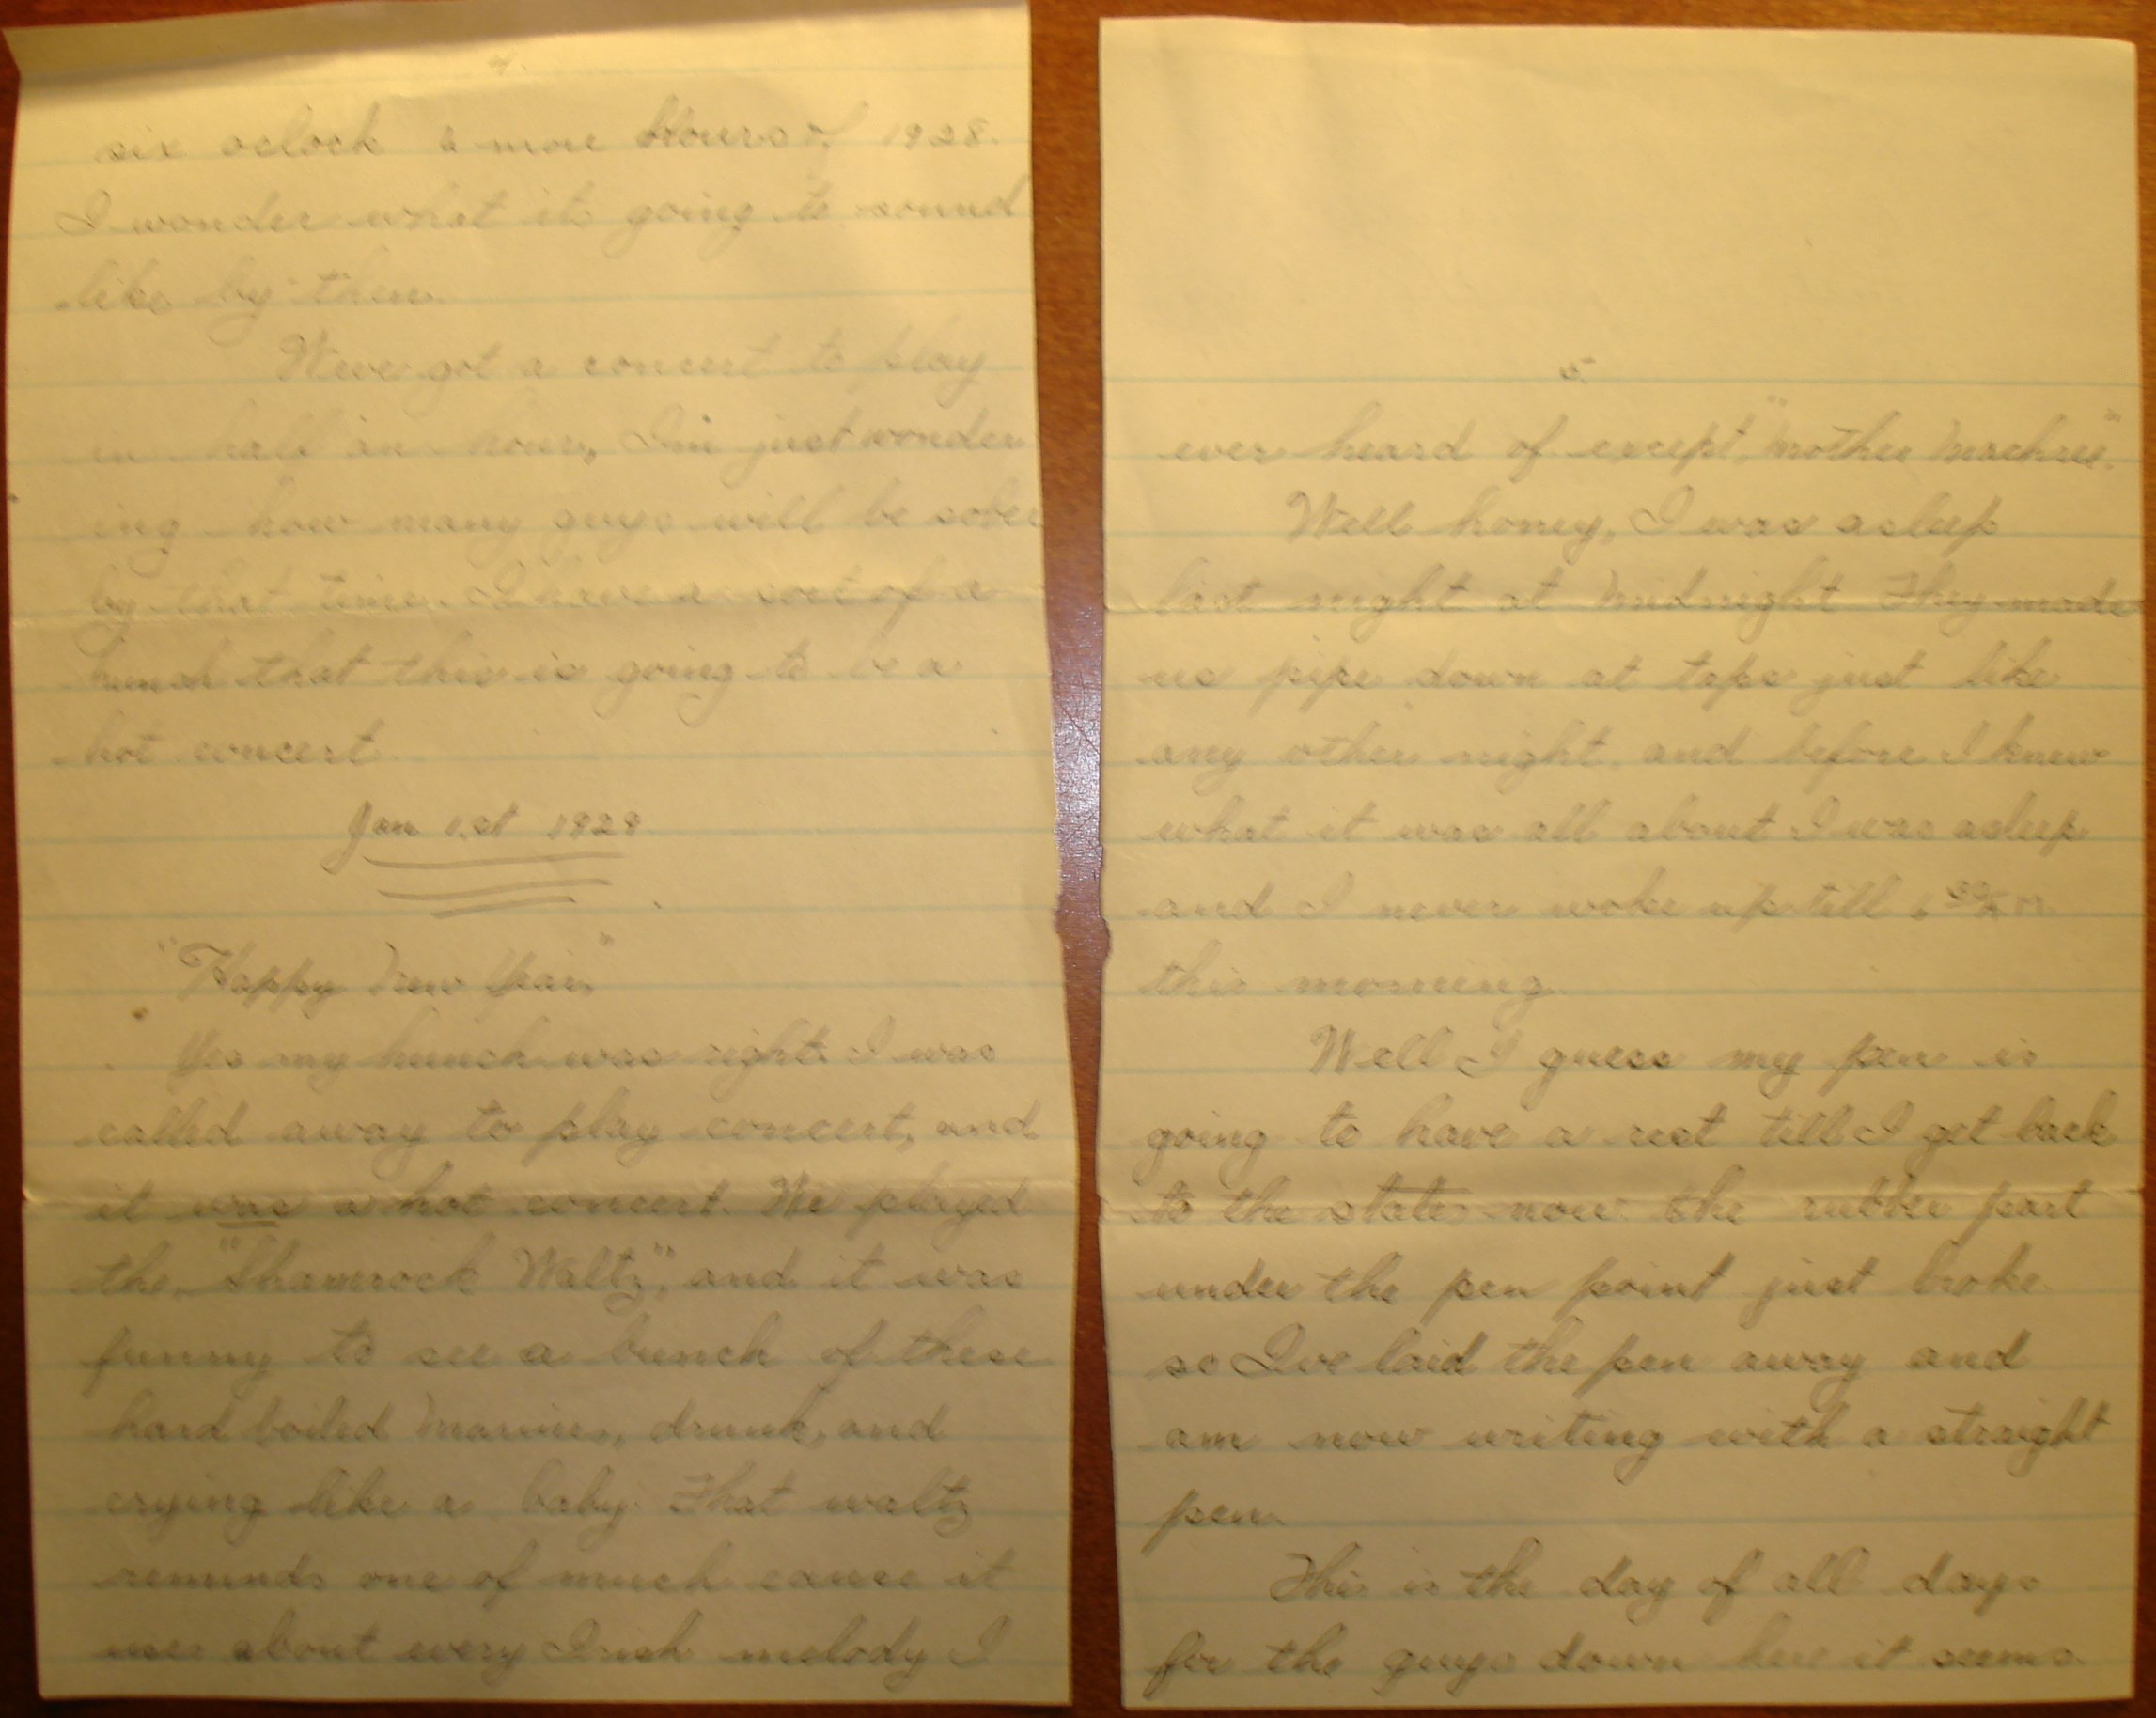 4.
six oclock 6 more hours of 1928.
I wonder what its going to sound
like by then.
Weve got a concert to play
in half an hour, Im just wonder
ing how many guys will be sober
by that time. I have a sort of a
hunch that this is going to be a
hot concert
Jan 1st 1929
"Happy New Year"
Yes my hunch was right I was
called away to play concert, and
it was a hot concert. We played
the, "Shamrock Waltz", and it was
funny to see a bunch of these
hard boiled Marines, drunk, and
crying like a baby. That waltz
reminds one of much cause it
uses about every Irish melody I
5.
ever heard of except, "Mother Machree".
Well honey, I was asleep
last night at midnight They made
us pipe down at taps just like
any other night, and before I knew
what it was all about I was asleep
and I never woke up till 6 30 A.M.
this morning
Well I guess my pen is
going to have a rest till I get back
to the states now the rubber part
under the pen point just broke
so Ive laid the pen away and
am now writing with a straight
pen.
This is the day of all days
for the guys down here it seems